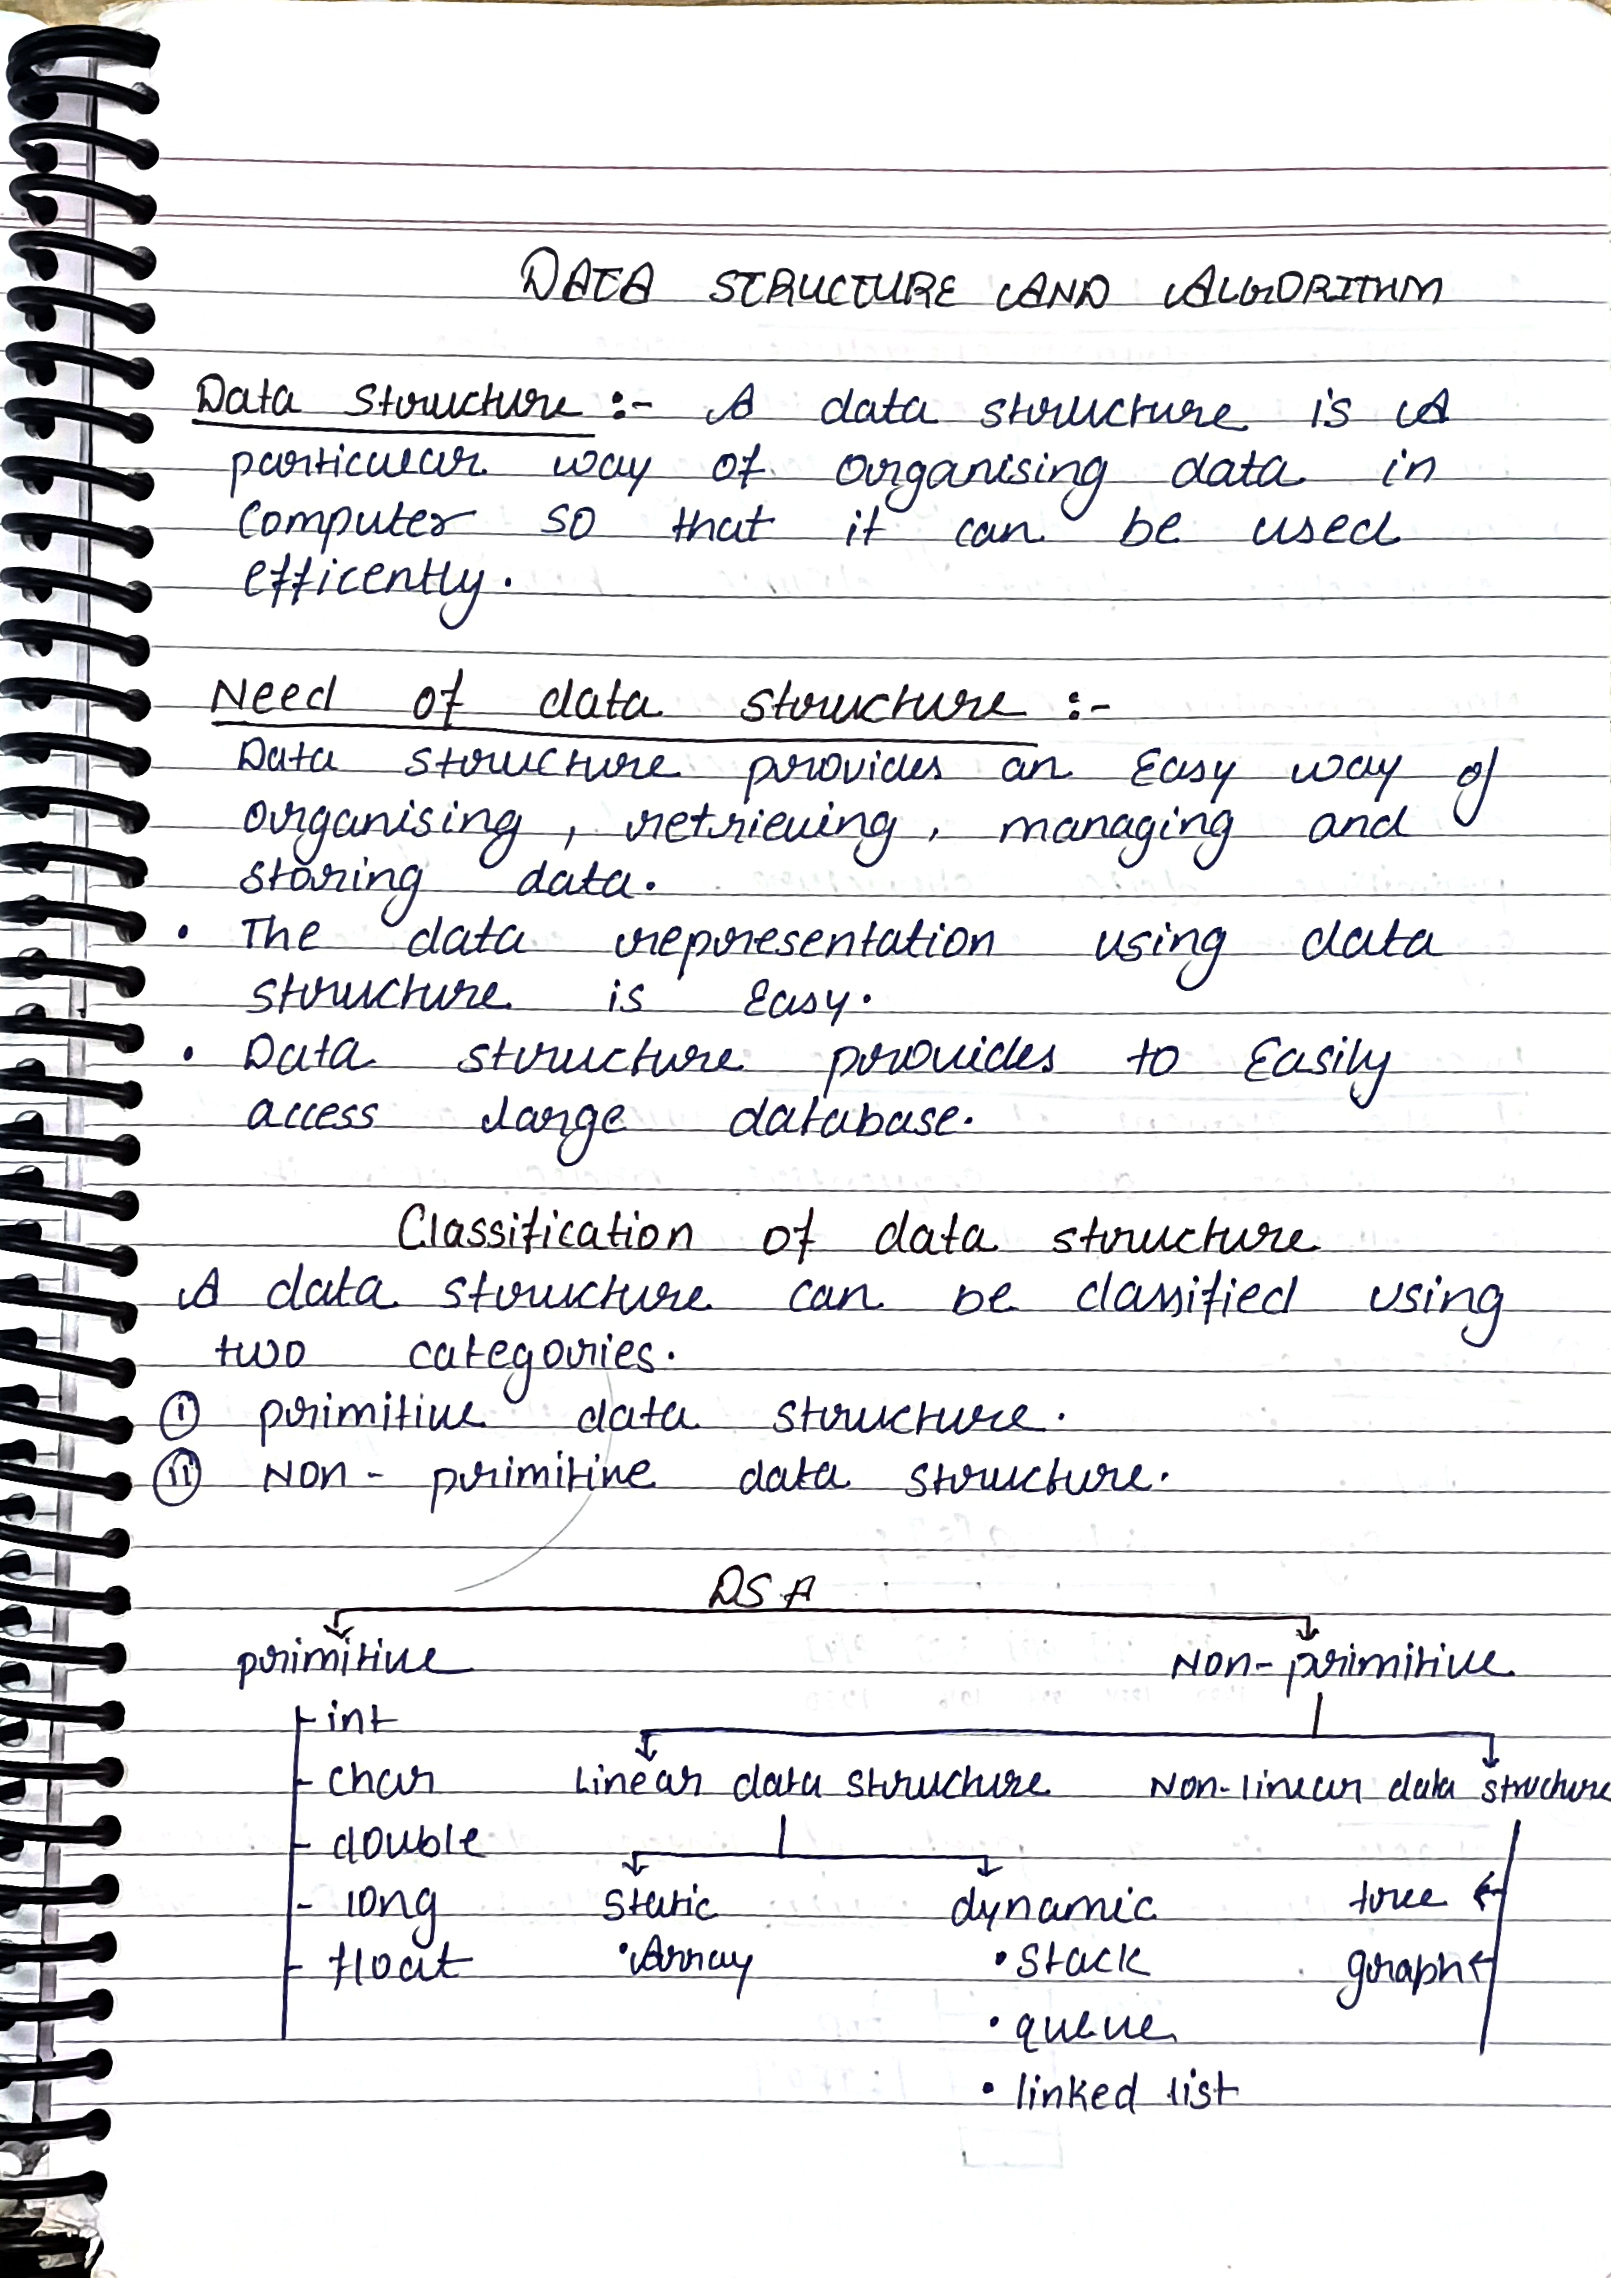 DATA STRUCTURE AND ALGORITHM
Data structure :- A data structure is A
particular way of organising data in
Computer so that it can be used
efficently.
Need of data structure :-
Data structure provides an Easy way of
organising, retrieving, managing and
storing data.
• The data representation using data
structure is Easy.
• Data structure provides to Easily
access large database.
Classification of data structure
A data structure can be classified using
two categories.
(i) primitive data structure.
(ii) Non - primitive data structure.
DSA
primitive Non-primitive
- int
- char Linear data structure Non-linear data structure
- double
- long static dynamic tree
- float • Array • Stack graph
• queue
• linked list